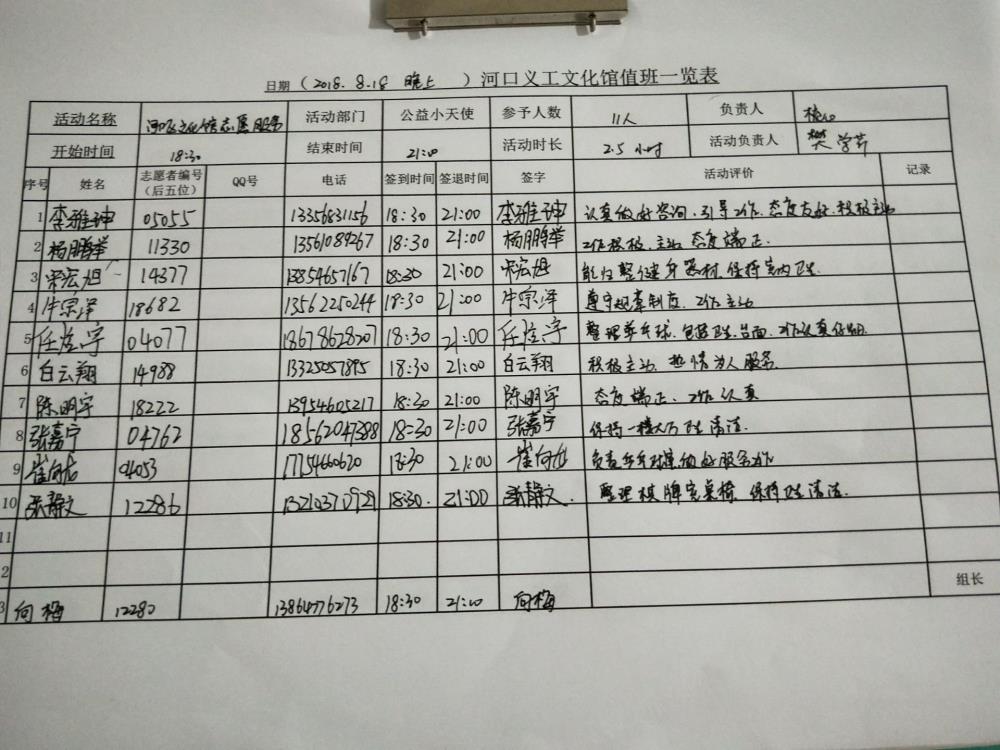 日期（2018. 8.18 晚上 ）河口义工文化馆值班一览表
活动名称 河口区文化馆志愿服务 活动部门 公益小天使 参予人数 11人 负责人
开始时间 18:30 结束时间 21:00 活动时长 2.5 小时 活动负责人 樊学芹
序号 姓名 志愿者编号（后五位） QQ号 电话 签到时间 签退时间 签字 活动评价 记录
1 李雅坤 05055 13356831156 18:30 21:00 李雅坤 认真做好咨询、引导工作、态度友好、积极主动
2 杨鹏举 11330 13561089267 18:30 21:00 杨鹏举 工作积极、主动 态度端正.
3 宋宏旭 14377 13854657167 18:30 21:00 宋宏旭 能归整健身器材、保持室内卫生.
4 牛宗泽 18682 13562250244 18:30 21:00 牛宗泽 遵守规章制度、工作主动
5 04077 18678628207 18:30 21:00 整理乒乓球、包括卫生、台面、工作认真仔细.
6 白云翔 14988 13325057895 18:30 21:00 白云翔 积极主动、热情为人服务.
7 陈明宇 18222 13954605217 18:30 21:00 陈明宇 态度端正、工作认真
8 张嘉宁 04762 18562047388 18:30 21:00 张嘉宁 保持一楼大厅卫生清洁.
9 崔向龙 04053 17754660620 18:30 21:00 崔向龙 负责乒乓球室做好服务工作
10 张静文 12286 13210370929 18:30. 21:00 张静文. 整理棋牌室桌椅、保持卫生清洁.
11
2
组长
3 向梅 12280 13864776273 18:30 21:00 向梅